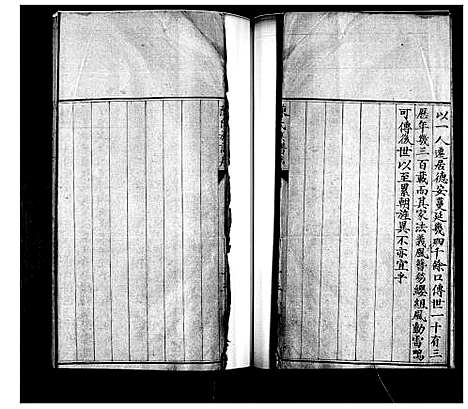 以一人遠居德安蔓延幾四千餘口傳世一十有三
歷年幾三百載而其家法義風簪笏纓組風動雷鳴
可傳後世以至累朝旌異不亦宜乎